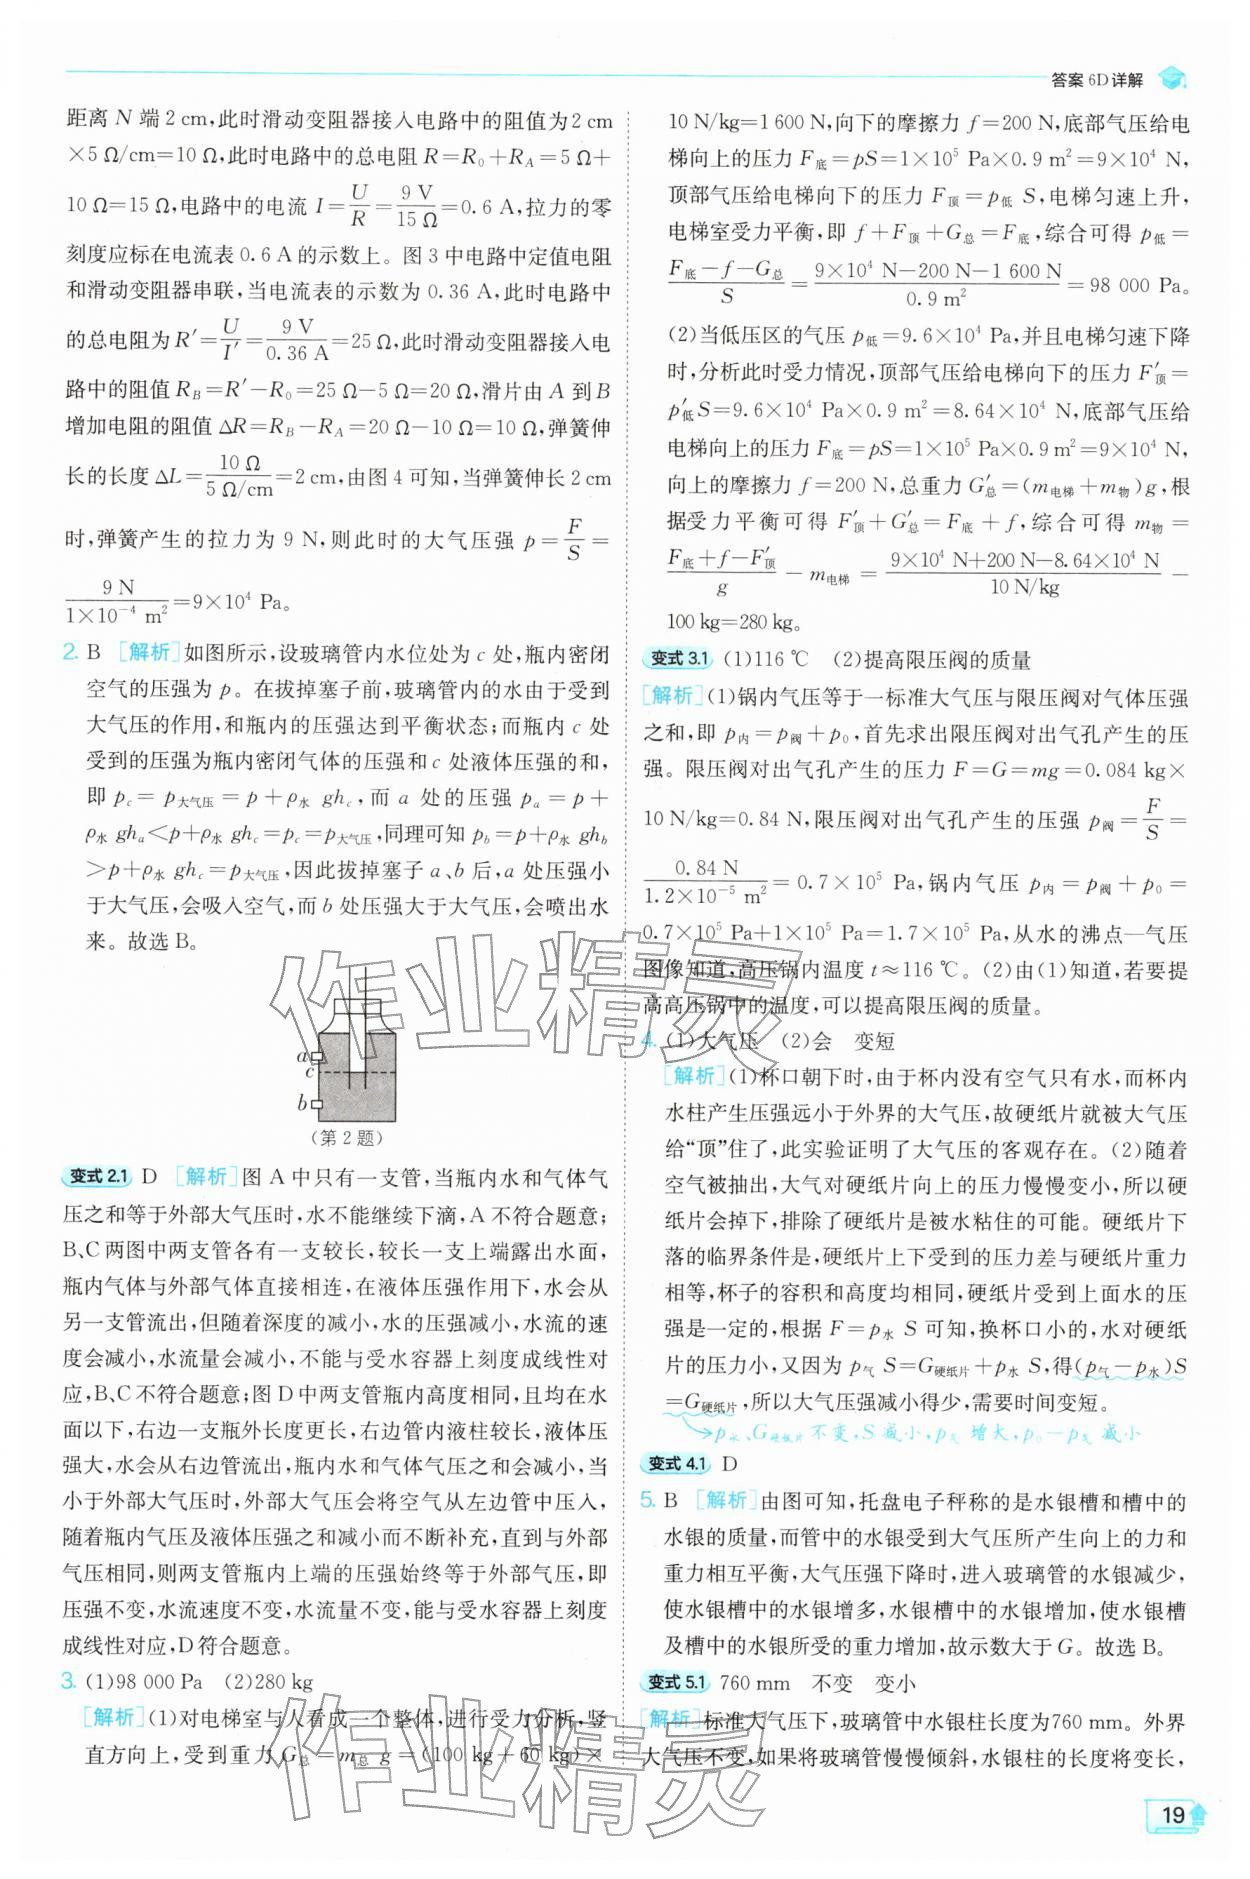 答案 6D详解
距离 N 端2 cm,此时滑动变阻器接入电路中的阻值为2 cm
×5 Ω/cm=10 Ω,此时电路中的总电阻 R=R₀+R_A=5 Ω+
10 Ω=15 Ω,电路中的电流 I=U/R=9 V/15 Ω=0.6 A,拉力的零
刻度应标在电流表 0.6 A 的示数上。图 3 中电路中定值电阻
和滑动变阻器串联,当电流表的示数为 0.36 A,此时电路中
的总电阻为 R′=U/I′=9 V/0.36 A=25 Ω,此时滑动变阻器接入电
路中的阻值 R_B=R′-R₀=25 Ω-5 Ω=20 Ω,滑片由 A 到 B
增加电阻的阻值 ΔR=R_B-R_A=20 Ω-10 Ω=10 Ω,弹簧伸
长的长度 ΔL=10 Ω/5 Ω/cm=2 cm,由图 4 可知,当弹簧伸长 2 cm
时,弹簧产生的拉力为 9 N,则此时的大气压强 p=F/S=
9 N/1×10⁻⁴ m²=9×10⁴ Pa。
2. B [解析]如图所示,设玻璃管内水位处为 c 处,瓶内密闭
空气的压强为 p。在拔掉塞子前,玻璃管内的水由于受到
大气压的作用,和瓶内的压强达到平衡状态;而瓶内 c 处
受到的压强为瓶内密闭气体的压强和 c 处液体压强的和,
即 p_c=p大气压=p+ρ水 gh_c,而 a 处的压强 p_a=p+
ρ水 gh_a<p+ρ水 gh_c=p_c=p大气压,同理可知 p_b=p+ρ水 gh_b
>p+ρ水 gh_c=p大气压,因此拔掉塞子 a、b 后,a 处压强小
于大气压,会吸入空气,而 b 处压强大于大气压,会喷出水
来。故选 B。
a
c
b
(第 2 题)
变式 2.1 D [解析]图 A 中只有一支管,当瓶内水和气体气
压之和等于外部大气压时,水不能继续下滴,A 不符合题意;
B、C 两图中两支管各有一支较长,较长一支上端露出水面,
瓶内气体与外部气体直接相连,在液体压强作用下,水会从
另一支管流出,但随着深度的减小,水的压强减小,水流的速
度会减小,水流量会减小,不能与受水容器上刻度成线性对
应,B、C 不符合题意;图 D 中两支管瓶内高度相同,且均在水
面以下,右边一支瓶外长度更长,右边管内液柱较长,液体压
强大,水会从右边管流出,瓶内水和气体气压之和会减小,当
小于外部大气压时,外部大气压会将空气从左边管中压入,
随着瓶内气压及液体压强之和减小而不断补充,直到与外部
气压相同,则两支管瓶内上端的压强始终等于外部气压,即
压强不变,水流速度不变,水流量不变,能与受水容器上刻度
成线性对应,D 符合题意。
3. (1)98 000 Pa (2)280 kg
[解析](1)对电梯室与人看成一个整体,进行受力分析,竖
直方向上,受到重力 G总=m总 g=(100 kg+60 kg)×
10 N/kg=1 600 N,向下的摩擦力 f=200 N,底部气压给电
梯向上的压力 F底=pS=1×10⁵ Pa×0.9 m²=9×10⁴ N,
顶部气压给电梯向下的压力 F顶=p低 S,电梯匀速上升,
电梯室受力平衡,即 f+F顶+G总=F底,综合可得 p低=
F底-f-G总/S=9×10⁴ N-200 N-1 600 N/0.9 m²=98 000 Pa。
(2)当低压区的气压 p低=9.6×10⁴ Pa,并且电梯匀速下降
时,分析此时受力情况,顶部气压给电梯向下的压力 F′顶=
p′低S=9.6×10⁴ Pa×0.9 m²=8.64×10⁴ N,底部气压给
电梯向上的压力 F底=pS=1×10⁵ Pa×0.9 m²=9×10⁴ N,
向上的摩擦力 f=200 N,总重力 G′总=(m电梯+m物)g,根
据受力平衡可得 F′顶+G′总=F底+f,综合可得 m物=
F底+f-F′顶/g-m电梯=9×10⁴ N+200 N-8.64×10⁴ N/10 N/kg-
100 kg=280 kg。
变式 3.1 (1)116 ℃ (2)提高限压阀的质量
[解析](1)锅内气压等于一标准大气压与限压阀对气体压强
之和,即 p内=p阀+p₀,首先求出限压阀对出气孔产生的压
强。限压阀对出气孔产生的压力 F=G=mg=0.084 kg×
10 N/kg=0.84 N,限压阀对出气孔产生的压强 p阀=F/S=
0.84 N/1.2×10⁻⁵ m²=0.7×10⁵ Pa,锅内气压 p内=p阀+p₀=
0.7×10⁵ Pa+1×10⁵ Pa=1.7×10⁵ Pa,从水的沸点—气压
图像知道,高压锅内温度 t≈116 ℃。(2)由(1)知道,若要提
高高压锅中的温度,可以提高限压阀的质量。
4. (1)大气压 (2)会 变短
[解析](1)杯口朝下时,由于杯内没有空气只有水,而杯内
水柱产生压强远小于外界的大气压,故硬纸片就被大气压
给“顶”住了,此实验证明了大气压的客观存在。(2)随着
空气被抽出,大气对硬纸片向上的压力慢慢变小,最后,硬
纸片会掉下,排除了硬纸片是被水粘住的可能。硬纸片下
落的临界条件是,硬纸片上下受到的压力差与硬纸片重力
相等,杯子的容积和高度均相同,硬纸片受到上面水的压
强是一定的,根据 F=p水 S 可知,换杯口小的,水对硬纸
片的压力小,又因为 p气 S=G硬纸片+p水 S,得(p气-p水)S
=G硬纸片,所以大气压强减小得少,需要时间变短。
p水、G硬纸片不变,S减小,p气增大,p₀-p气减小
变式 4.1 D
5. B [解析]由图可知,托盘电子秤称的是水银槽和槽中的
水银的质量,而管中的水银受到大气压所产生向上的力和
重力相互平衡,大气压强下降时,进入玻璃管的水银减少,
使水银槽中的水银增多,水银槽中的水银增加,使水银槽
及槽中的水银所受的重力增加,故示数大于 G。故选 B。
变式 5.1 760 mm 不变 变小
[解析]标准大气压下,玻璃管中水银柱长度为760 mm。外界
大气压不变,如果将玻璃管慢慢倾斜,水银柱的长度将变长,
作业精灵
作业精灵
19